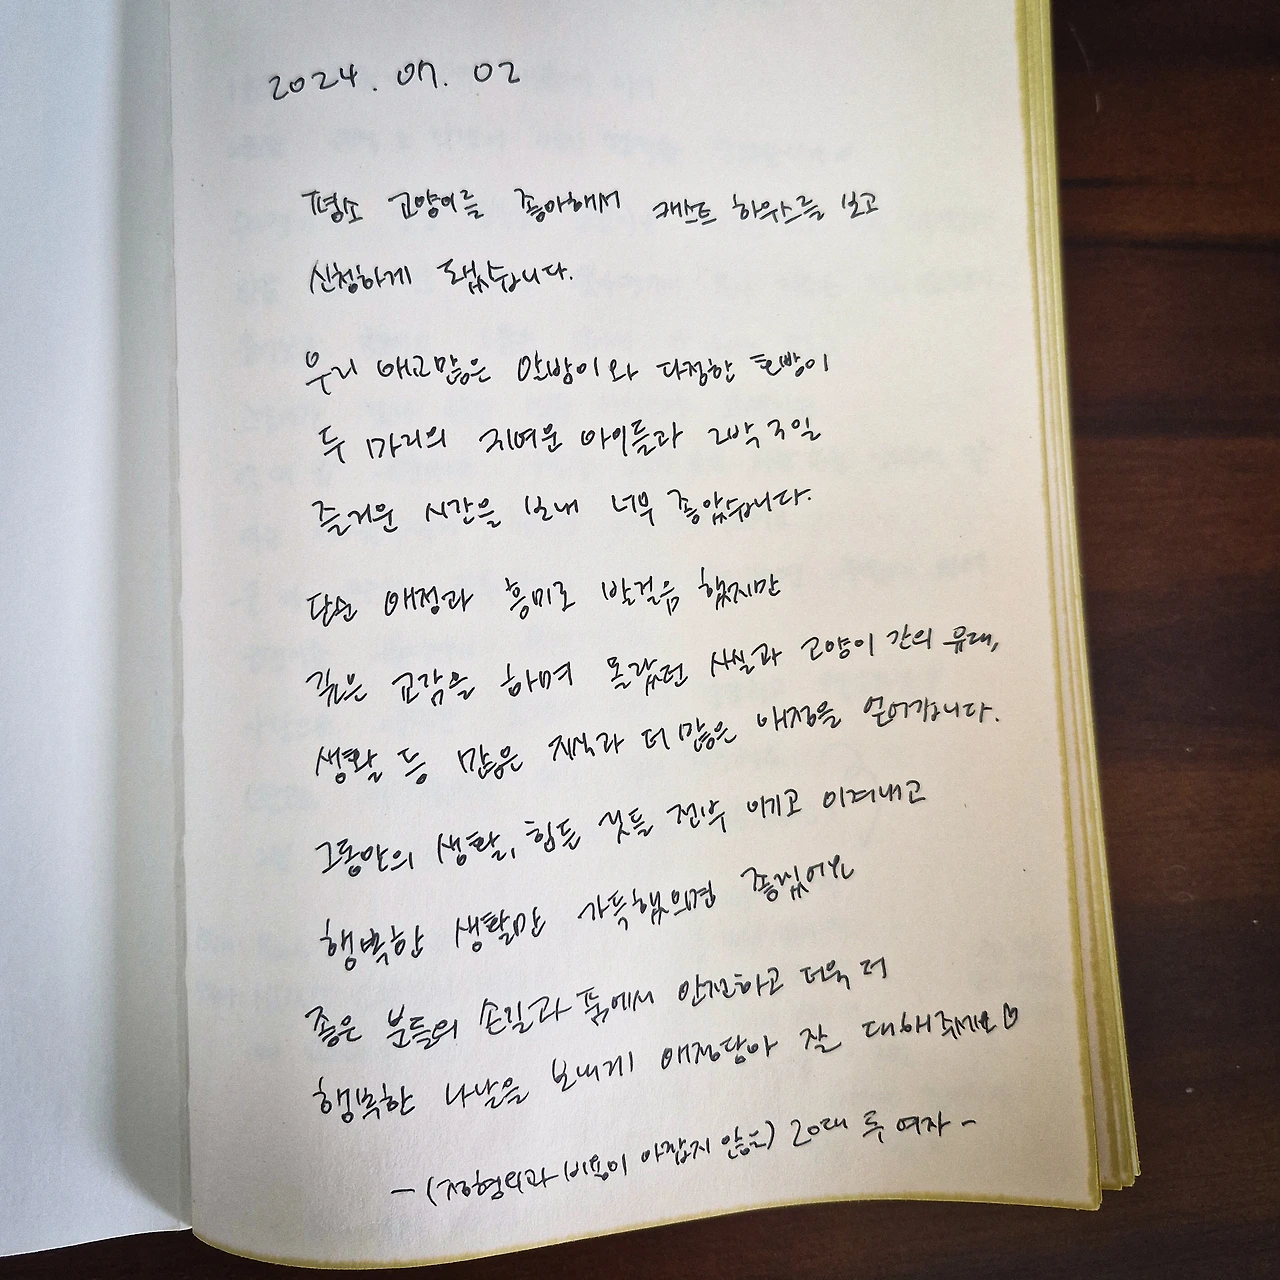 2024. 07. 02
평소 고양이를 좋아해서 캐스트 하우스를 보고
신청하게 됐습니다.
우리 애교많은 안방이와 다정한 호방이
두 마리의 귀여운 아이들과 2박 3일
즐거운 시간을 보내 너무 좋았습니다.
단순 애정과 흥미로 발걸음 했지만
깊은 교감을 하며 몰랐던 사실과 고양이 간의 유대,
생활 등 많은 지식과 더 많은 애정을 얻어갑니다.
그동안의 생활, 힘든 것들 전부 이기고 이겨내고
행복한 생활만 가득했으면 좋겠어요
좋은 분들의 손길과 품에서 안전하고 더욱 더
행복한 나날을 보내게 애정담아 잘 대해주세요♡
- (정형외과 비용이 아깝지 않은) 20대 두 여자 -